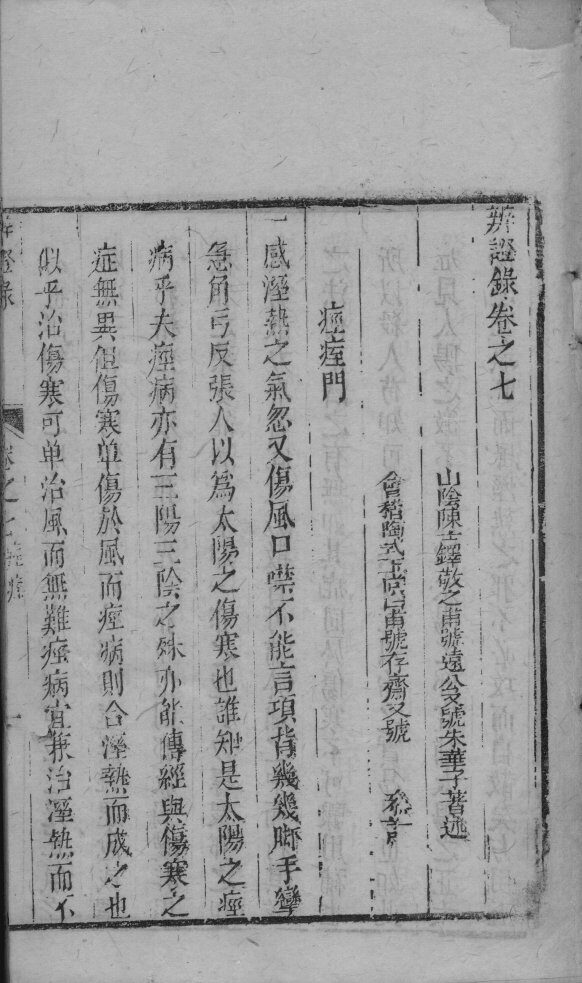 辨證錄卷之七
山陰陳士鐸敬之甫號遠公又號朱華子著述
會稽陶式玉尚白甫號存齋又號
痙痓門
一感溼熱之氣忽又傷風口噤不能言項背幾幾脚手攣
急角弓反張人以爲太陽之傷寒也誰知是太陽之痙
病乎夫痙病亦有三陽三陰之殊亦能傳經與傷寒之
症無異但傷寒单傷於風而痙病則合溼熱而成之也
似乎治傷寒可单治風而無難痙病宜兼治溼熱而不
卷之七